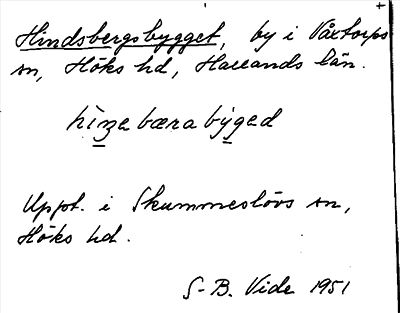 Hindsbergsbygget, by i Våxtorps
sn, Höks hd, Hallands län.
hìnebærabýged
Uppt. i Skummeslövs sn,
Höks hd.
S-B. Vide 1951